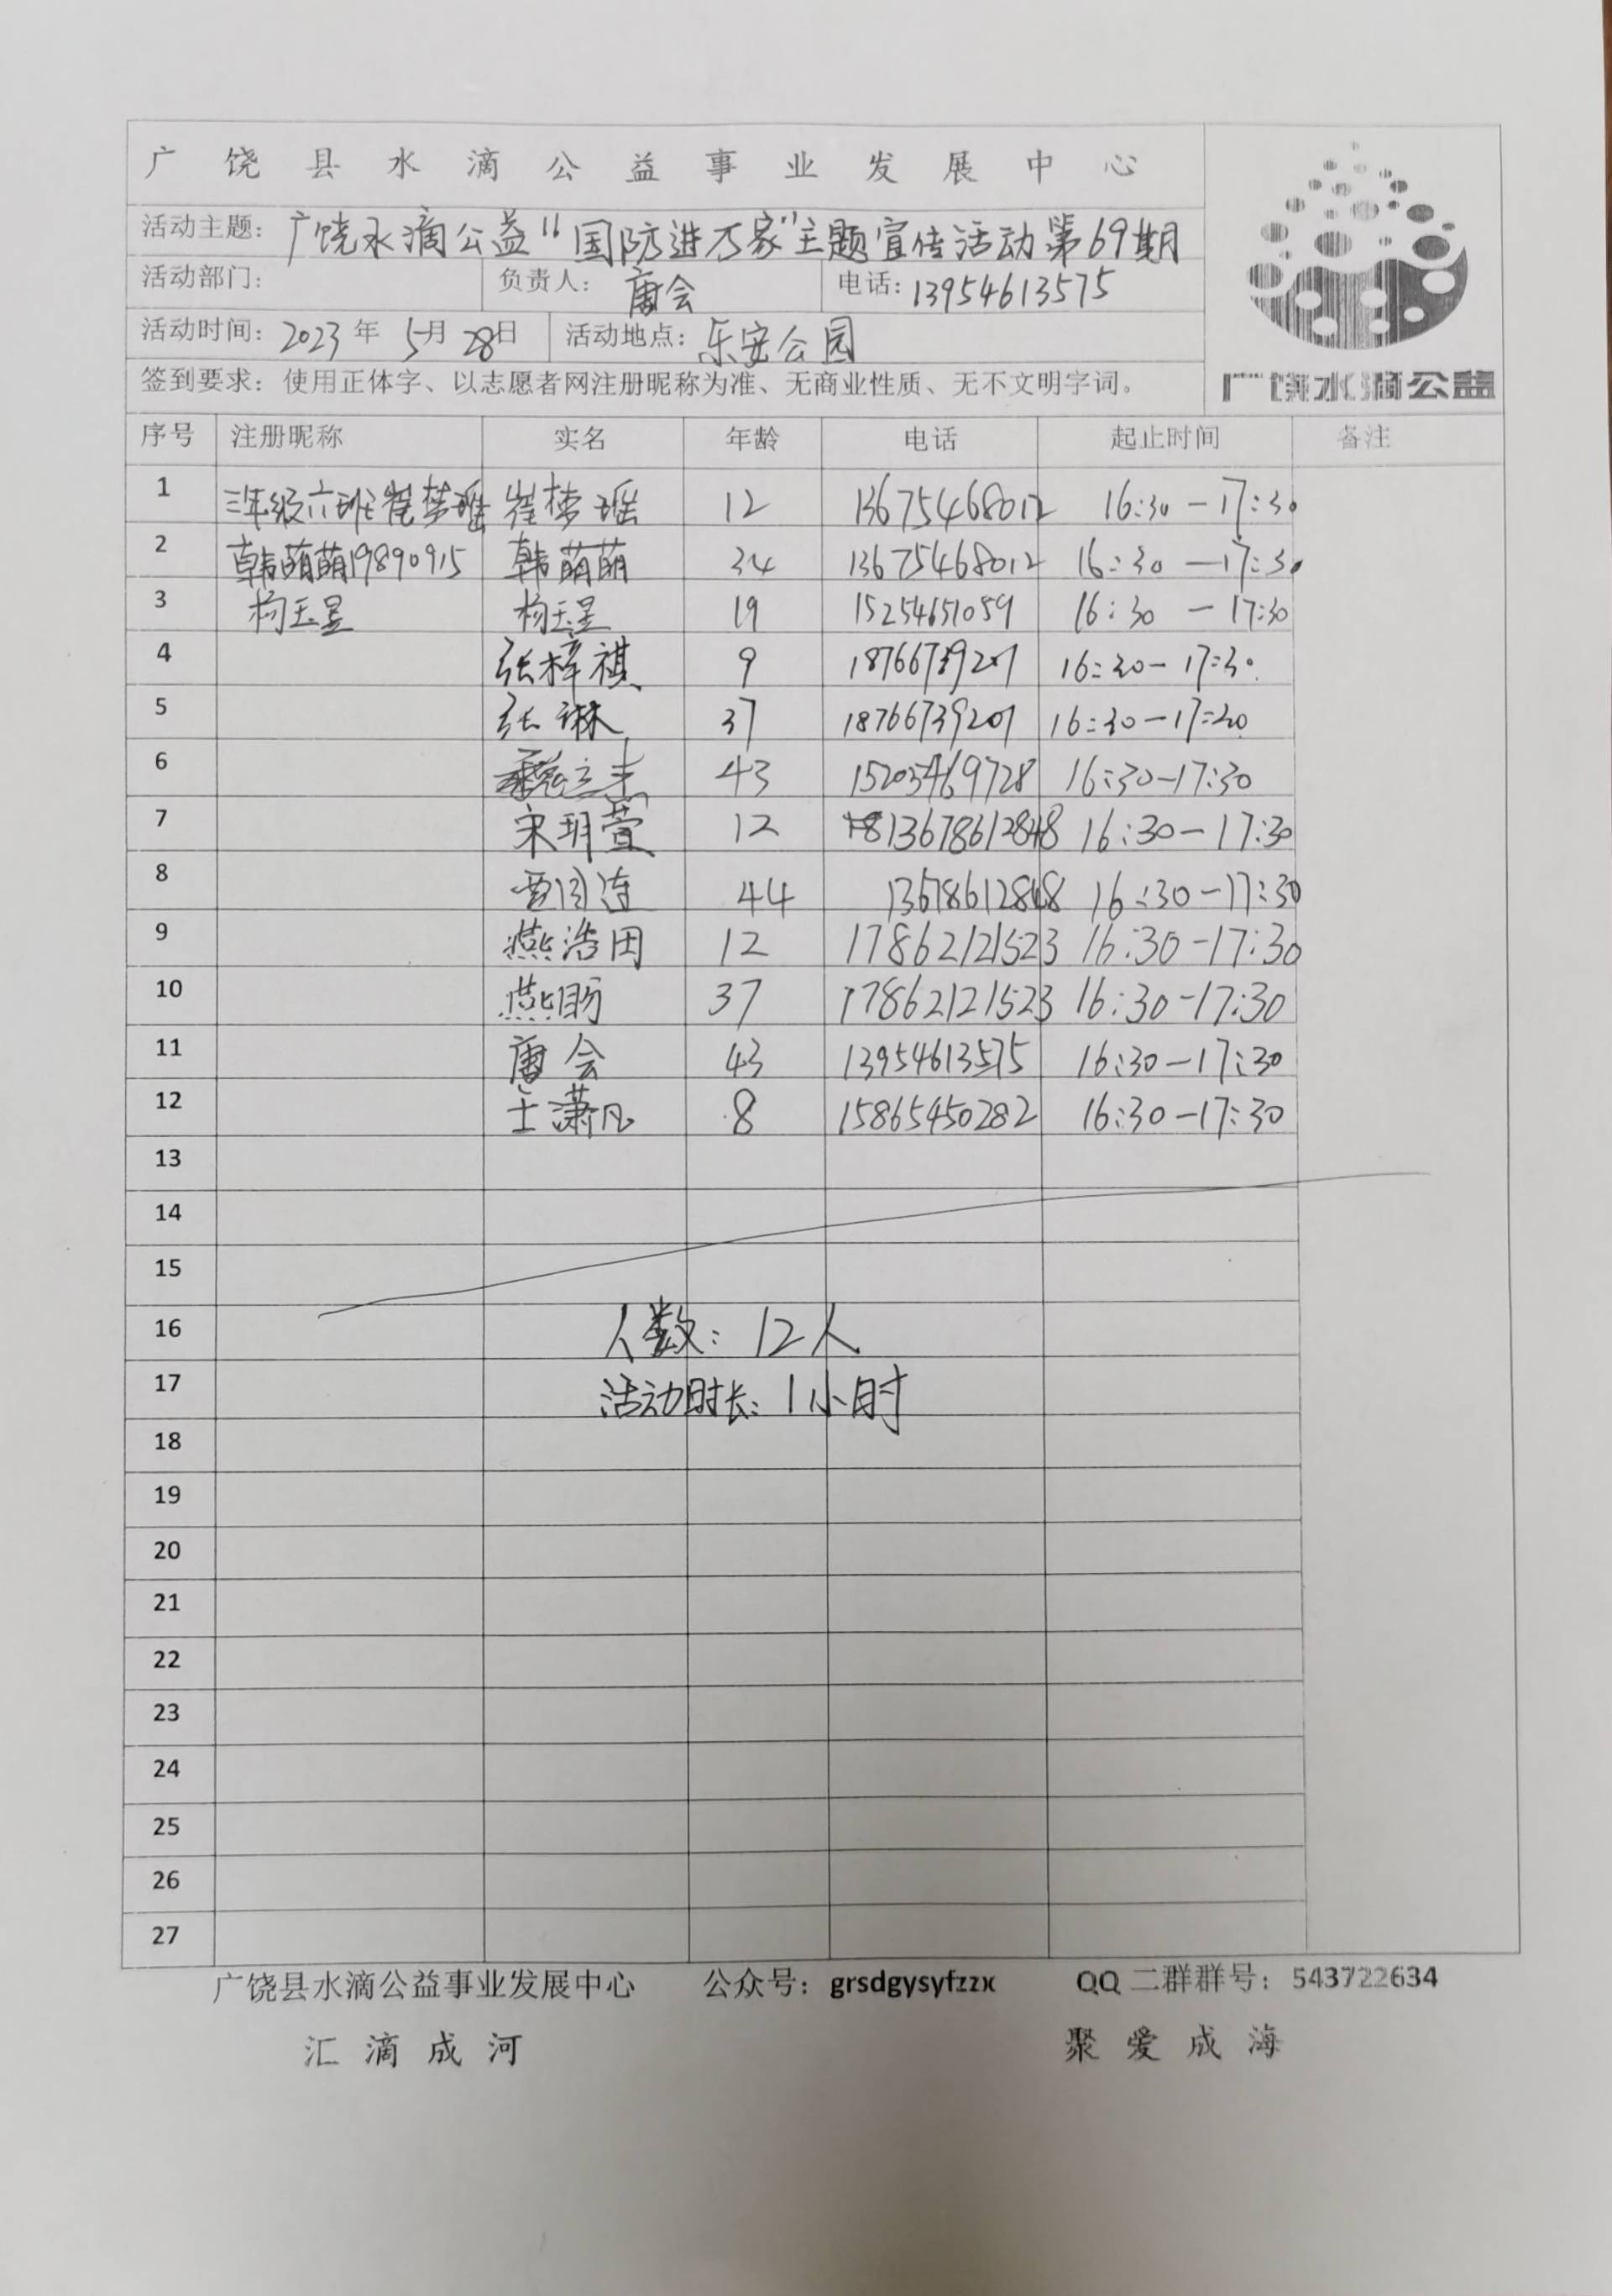 广饶县水滴公益事业发展中心
活动主题：广饶水滴公益“国防进万家”主题宣传活动第69期
活动部门： 负责人：唐会 电话：13954613575
活动时间：2023年5月28日 活动地点：乐安公园
签到要求：使用正体字、以志愿者网注册昵称为准、无商业性质、无不文明字词。
广饶水滴公益
序号 注册昵称 实名 年龄 电话 起止时间 备注
1 三年级六班崔梦瑶 崔梦瑶 12 13675468012 16:30-17:30
2 韩萌萌19890915 韩萌萌 34 13675468012 16:30-17:30
3 杨玉昱 杨玉昱 19 15254651059 16:30-17:30
4 张梓祺 9 18766739207 16:30-17:30
5 张琳 37 18766739207 16:30-17:30
6 43 15205469728 16:30-17:30
7 宋玥萱 12 13678612848 16:30-17:30
8 44 13678612848 16:30-17:30
9 燕浩田 12 17862121523 16:30-17:30
10 燕 37 17862121523 16:30-17:30
11 唐会 43 13954613575 16:30-17:30
12 王潇凡 8 15865450282 16:30-17:30
13
14
15
16 人数：12人
17 活动时长：1小时
18
19
20
21
22
23
24
25
26
27
广饶县水滴公益事业发展中心 公众号：grsdgysyfzzx QQ二群群号：543722634
汇滴成河 聚爱成海